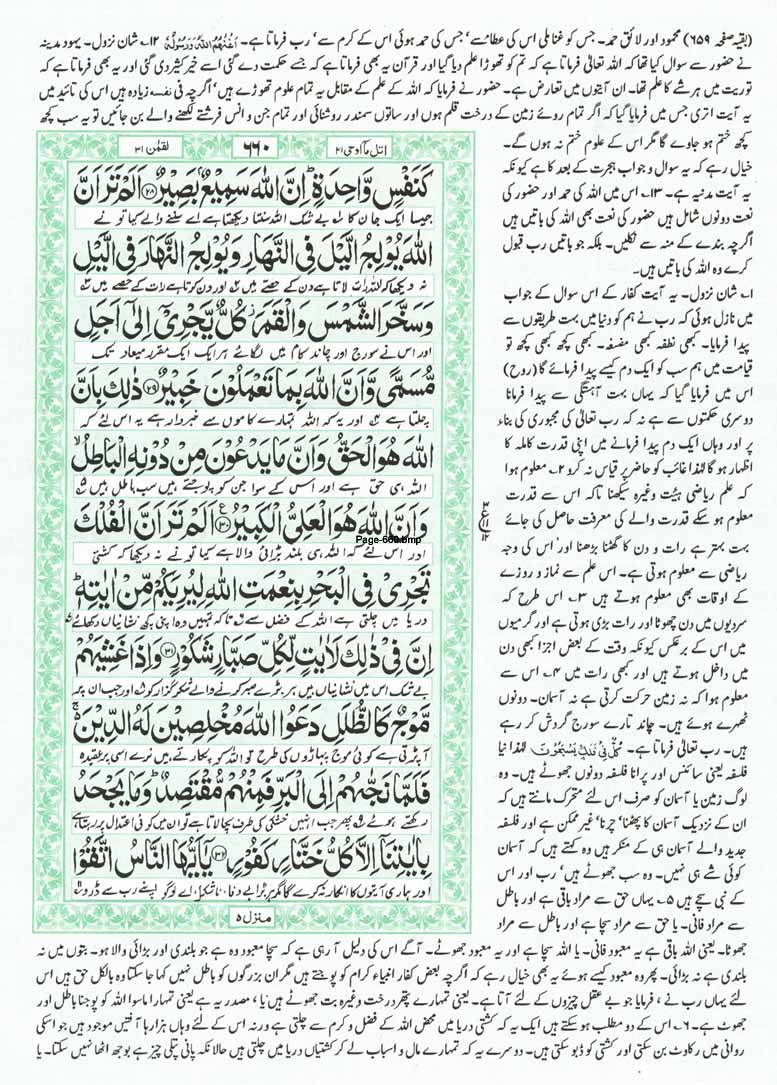 (بقیہ صفحہ ۶۵۹) محمود اور لائق حمد۔ جس کو غنا ملی اس کی عطا سے، جس کی حمد ہوئی اس کے کرم سے، رب فرماتا ہے۔ اَغْنٰهُمُ اللّٰهُ وَرَسُوْلُهٗ ۱۲۔ شان نزول۔ یہود مدینہ
نے حضور سے سوال کیا تھا کہ اللہ تعالی فرماتا ہے کہ تم کو تھوڑا علم دیا گیا اور قرآن یہ بھی فرماتا ہے کہ جسے حکمت دے گئی اسے خیر کثیر دی گئی اور یہ بھی فرماتا ہے کہ
توریت میں ہر شے کا علم تھا۔ ان آیتوں میں تعارض ہے۔ حضور نے فرمایا کہ اللہ کے علم کے مقابل یہ تمام علوم تھوڑے ہیں، اگرچہ فی نفسہ زیادہ ہیں اس کی تائید میں
یہ آیت اتری جس میں فرمایا گیا کہ اگر تمام روئے زمین کے درخت قلم ہوں اور ساتوں سمندر روشنائی اور تمام جن و انس فرشتے لکھنے والے بن جائیں تو یہ سب کچھ
کچھ ختم ہو جاوے گا مگر اس کے علوم ختم نہ ہوں گے۔
خیال رہے کہ یہ سوال و جواب ہجرت کے بعد کا ہے کیونکہ
یہ آیت مدنیہ ہے۔ ۱۳۔ اس میں اللہ کی حمد اور حضور کی
نعت دونوں شامل ہیں حضور کی نعت بھی اللہ کی باتیں ہیں
اگرچہ بندے کے منہ سے نکلیں۔ بلکہ جو باتیں رب قبول
کرے وہ اللہ کی باتیں ہیں۔
۱۔ شان نزول۔ یہ آیت کفار کے اس سوال کے جواب
میں نازل ہوئی کہ رب نے ہم کو دنیا میں بہت طریقوں سے
پیدا فرمایا۔ کبھی نطفہ کبھی مضغہ۔ کبھی کچھ کبھی کچھ تو
قیامت میں ہم سب کو ایک دم کیسے پیدا فرمائے گا (روح)
اس میں فرمایا گیا کہ یہاں بہت آہستگی سے پیدا فرمانا
دوسری حکمتوں سے ہے نہ کہ رب تعالی کی مجبوری کی بناء
پر اور وہاں ایک دم پیدا فرمانے میں اپنی قدرت کاملہ کا
اظہار ہو گا لہٰذا غائب کو حاضر پر قیاس نہ کرو ۲۔ معلوم ہوا
کہ علم ریاضی ہیئت وغیرہ سیکھنا تاکہ اس سے قدرت
معلوم ہو سکے قدرت والے کی معرفت حاصل کی جائے
بہت بہتر ہے رات و دن کا گھٹنا بڑھنا اور اس کی وجہ
ریاضی سے معلوم ہوتی ہے۔ اس علم سے نماز و روزے
کے اوقات بھی معلوم ہوتے ہیں ۳۔ اس طرح کہ
سردیوں میں دن چھوٹا اور رات بڑی ہوتی ہے اور گرمیوں
میں اس کے برعکس کیونکہ وقت کے بعض اجزا کبھی دن
میں داخل ہوتے ہیں اور کبھی رات میں ۴۔ اس سے
معلوم ہوا کہ نہ زمین حرکت کرتی ہے نہ آسمان۔ دونوں
ٹھہرے ہوئے ہیں۔ چاند تارے سورج گردش کر رہے
ہیں۔ رب تعالی فرماتا ہے۔ كُلٌّ فِيْ فَلَكٍ يَّسْبَحُوْنَ۔ لہٰذا نیا
فلسفہ یعنی سائنس اور پرانا فلسفہ دونوں جھوٹے ہیں۔ وہ
لوگ زمین یا آسمان کو صرف اس لئے متحرک مانتے ہیں کہ
ان کے نزدیک آسمان کا پھٹنا، چرنا، غیر ممکن ہے اور فلسفہ
جدید والے آسمان ہی کے منکر ہیں وہ کہتے ہیں کہ آسمان
کوئی شے ہی نہیں۔ وہ سب جھوٹے ہیں، رب اور اس
کے نبی سچے ہیں ۵۔ یہاں حق سے مراد باقی ہے اور باطل
سے مراد فانی۔ یا حق سے مراد سچا ہے اور باطل سے مراد
اتل ما اوحی ۲۱
۶۶۰
لقمٰن ۳۱
كَنَفْسٍ وَّاحِدَةٍ ؕ اِنَّ اللّٰهَ سَمِيْعٌۢ بَصِيْرٌ ﴿۲۸﴾ اَلَمْ تَرَ اَنَّ
جیسا ایک جان کا بے شک اللہ سنتا دیکھتا ہے اے سننے والے کیا تو نے
اللّٰهَ يُوْلِجُ الَّيْلَ فِي النَّهَارِ وَيُوْلِجُ النَّهَارَ فِي الَّيْلِ
نہ دیکھا کہ اللہ رات لاتا ہے دن کے حصے میں اور دن کرتا ہے رات کے حصے میں
وَسَخَّرَ الشَّمْسَ وَالْقَمَرَ ؗ كُلٌّ يَّجْرِيْۤ اِلٰۤى اَجَلٍ
اور اس نے سورج اور چاند کام میں لگائے ہر ایک ایک مقرر میعاد تک
مُّسَمًّى وَّاَنَّ اللّٰهَ بِمَا تَعْمَلُوْنَ خَبِيْرٌ ﴿۲۹﴾ ذٰلِكَ بِاَنَّ
چلتا ہے اور یہ کہ اللہ تمہارے کاموں سے خبردار ہے یہ اس لئے کہ
اللّٰهَ هُوَ الْحَقُّ وَاَنَّ مَا يَدْعُوْنَ مِنْ دُوْنِهِ الْبَاطِلُ ۙ
اللہ ہی حق ہے اور اس کے سوا جن کو پوجتے ہیں سب باطل ہیں
وَاَنَّ اللّٰهَ هُوَ الْعَلِيُّ الْكَبِيْرُ ﴿۳۰﴾ اَلَمْ تَرَ اَنَّ الْفُلْكَ
Page-660.bmp
اور اس لئے کہ اللہ ہی بلند بڑائی والا ہے کیا تو نے نہ دیکھا کہ کشتی
تَجْرِيْ فِي الْبَحْرِ بِنِعْمَتِ اللّٰهِ لِيُرِيَكُمْ مِّنْ اٰيٰتِهٖ ؕ
دریا میں چلتی ہے اللہ کے فضل سے تاکہ تمہیں وہ اپنی کچھ نشانیاں دکھائے
اِنَّ فِيْ ذٰلِكَ لَاٰيٰتٍ لِّكُلِّ صَبَّارٍ شَكُوْرٍ ﴿۳۱﴾ وَاِذَا غَشِيَهُمْ
بے شک اس میں نشانیاں ہیں ہر بڑے صبر کرنے والے شکر گزار کو اور جب ان پر
مَّوْجٌ كَالظُّلَلِ دَعَوُا اللّٰهَ مُخْلِصِيْنَ لَهُ الدِّيْنَ ۚ
آ پڑتی ہے کوئی موج پہاڑوں کی طرح تو اللہ کو پکارتے ہیں نرے اسی پر عقیدہ
فَلَمَّا نَجّٰىهُمْ اِلَى الْبَرِّ فَمِنْهُمْ مُّقْتَصِدٌ ؕ وَمَا يَجْحَدُ
رکھتے ہوئے پھر جب انہیں خشکی کی طرف بچا لاتا ہے تو ان میں کوئی اعتدال پر رہتا ہے
بِاٰيٰتِنَاۤ اِلَّا كُلُّ خَتَّارٍ كَفُوْرٍ ﴿۳۲﴾ يٰۤاَيُّهَا النَّاسُ اتَّقُوْا
اور ہماری آیتوں کا انکار نہ کرے گا مگر ہر بڑا بے وفا ناشکرا اے لوگو اپنے رب سے ڈرو
منزل ۵
جھوٹا۔ یعنی اللہ باقی ہے یہ معبود فانی۔ یا اللہ سچا ہے اور یہ معبود جھوٹے۔ آگے اس کی دلیل آ رہی ہے کہ سچا معبود وہ ہے جو بلندی اور بڑائی والا ہو۔ بتوں میں نہ
بلندی ہے نہ بڑائی۔ پھر وہ معبود کیسے ہوئے یہ بھی خیال رہے کہ اگرچہ بعض کفار انبیاء کرام کو پوجتے ہیں مگر ان بزرگوں کو باطل نہیں کہا جا سکتا وہ بالکل حق ہیں اس
لئے یہاں رب نے ما فرمایا جو بے عقل چیزوں کے لئے آتا ہے۔ یعنی تمہارے پتھر درخت وغیرہ بت جھوٹے ہیں یا ما مصدریہ ہے یعنی تمہارا ماسوا اللہ کو پوجنا باطل اور
جھوٹ ہے۔ ۶۔ اس کے دو مطلب ہو سکتے ہیں ایک یہ کہ کشتی دریا میں محض اللہ کے فضل و کرم سے چلتی ہے ورنہ اس کے لئے وہاں ہزارہا آفتیں موجود ہیں جو اسکی
روانی میں رکاوٹ بن سکتی اور کشتی کو ڈبو سکتی ہیں۔ دوسرے یہ کہ تمہارے مال و اسباب لے کر کشتیاں دریا میں چلتی ہیں حالانکہ پانی پتلی چیز ہے بوجھ اٹھا نہیں سکتا۔ یا